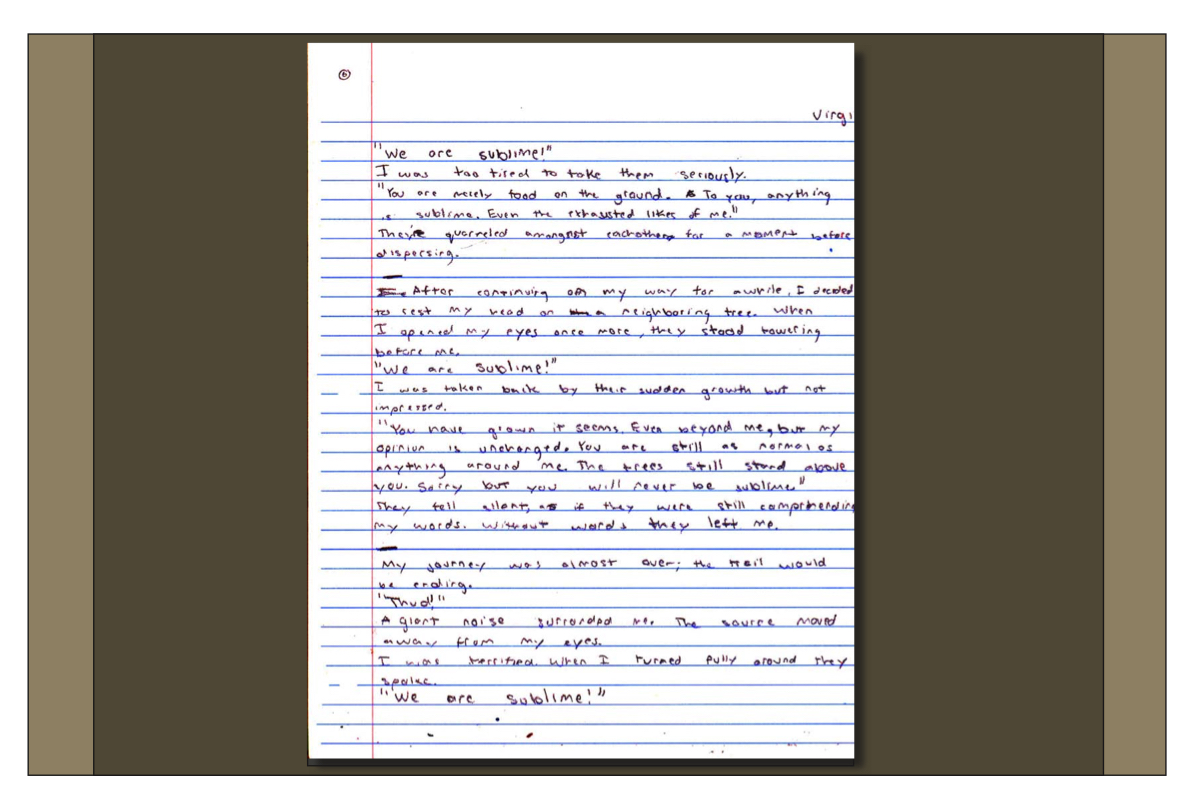 6
Virgi
"We are sublime!"
I was too tired to take them seriously.
"You are merely food on the ground. To you, anything
is sublime. Even the exhausted likes of me."
They quarreled amongnst eachother for a moment before
dispersing.
After continuing on my way for awhile, I decided
to rest my head on a neighboring tree. When
I opened my eyes once more, they stood towering
before me.
"We are sublime!"
I was taken back by their sudden growth but not
impressed.
"You have grown it seems. Even beyond me, but my
opinion is unchanged. You are still as normal as
anything around me. The trees still stand above
you. Sorry but you will never be sublime"
They fell silent, as if they were still comprehending
my words. Without words they left me.
My journey was almost over; the trail would
be ending.
"Thud!"
A giant noise surronded me. The source moved
away from my eyes.
I was terrified. When I turned fully around they
spoke.
"We are sublime!"